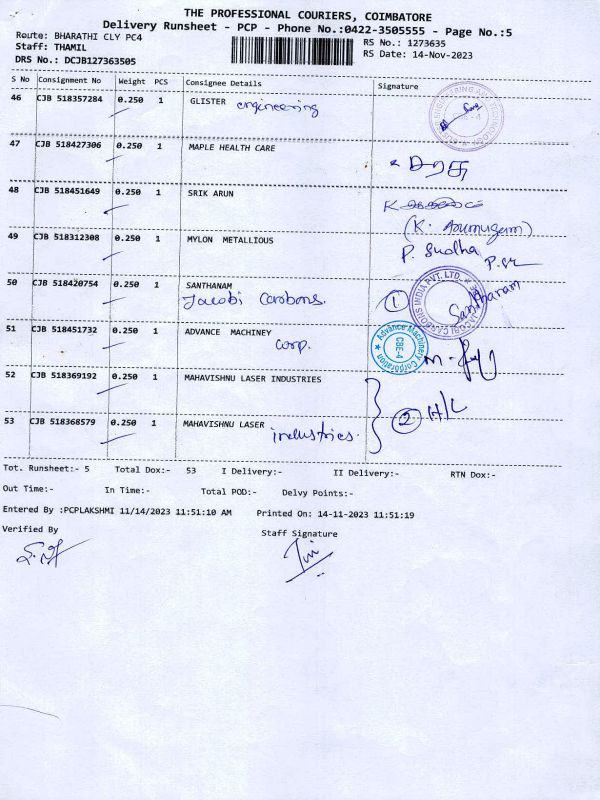 THE PROFESSIONAL COURIERS, COIMBATORE
Delivery Runsheet - PCP - Phone No.:0422-3505555 - Page No.:5
Route: BHARATHI CLY PC4
RS No.: 1273635
Staff: THAMIL
RS Date: 14-Nov-2023
DRS No.: DCJB127363505
S No Consignment No Weight PCS Consignee Details Signature
46 CJB 518357284 0.250 1 GLISTER engineering
47 CJB 518427306 0.250 1 MAPLE HEALTH CARE
48 CJB 518451649 0.250 1 SRIK ARUN
(K. Arumugam)
49 CJB 518312308 0.250 1 MYLON METALLIOUS P. Sudha
50 CJB 518420754 0.250 1 SANTHANAM
Jacobi Carbons. 1 Santharam
51 CJB 518451732 0.250 1 ADVANCE MACHINEY
Corp. Advance Machinery Corporation CBE-4
52 CJB 518369192 0.250 1 MAHAVISHNU LASER INDUSTRIES
2 H/L
53 CJB 518368579 0.250 1 MAHAVISHNU LASER
industries.
Tot. Runsheet:- 5 Total Dox:- 53 I Delivery:- II Delivery:- RTN Dox:-
Out Time:- In Time:- Total POD:- Delvy Points:-
Entered By :PCPLAKSHMI 11/14/2023 11:51:10 AM Printed On: 14-11-2023 11:51:19
Verified By Staff Signature